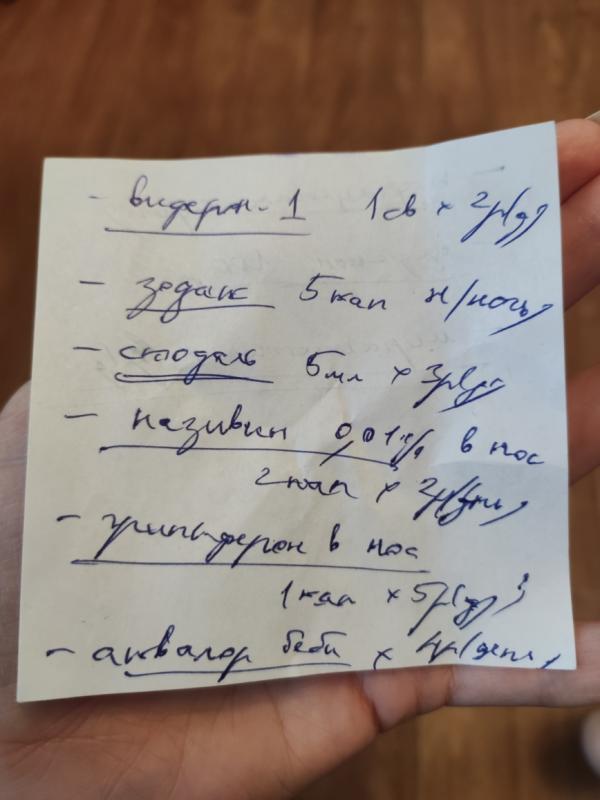 - видерон-1 1св × 2р(д)
- зодак 5 кап н/ночь
- стодаль 5мл × 3р(д)
- називин 0,01% в нос
2 кап × 2р(день)
- гриппферон в нос
1 кап × 5р(д)
- аквалор беби × 4р(день)